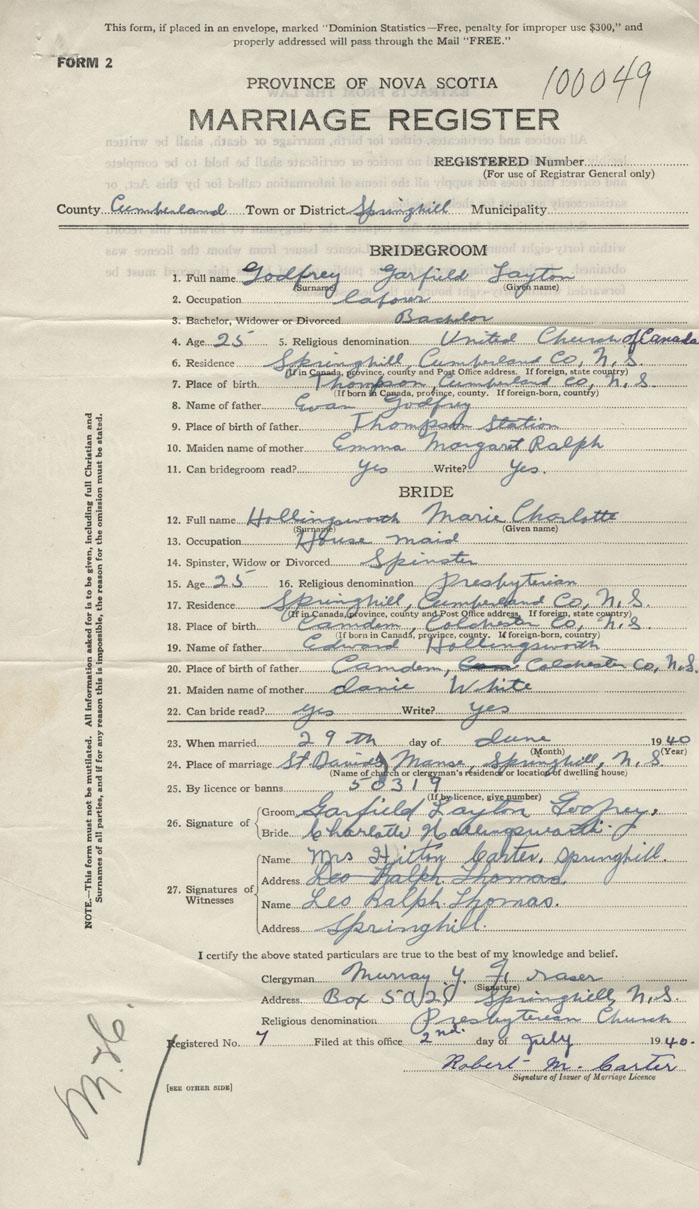 This form, if placed in an envelope, marked "Dominion Statistics—Free, penalty for improper use $300," and
properly addressed will pass through the Mail "FREE."
FORM 2
100049
PROVINCE OF NOVA SCOTIA
MARRIAGE REGISTER
REGISTERED Number
(For use of Registrar General only)
County Cumberland Town or District Springhill Municipality
BRIDEGROOM
1. Full name Godfrey Garfield Layton
(Surname) (Given name)
2. Occupation labourer
3. Bachelor, Widower or Divorced Bachelor
4. Age 25 5. Religious denomination United Church of Canada
6. Residence Springhill, Cumberland Co, N.S.
(If in Canada, province, county and Post Office address. If foreign, state country)
7. Place of birth Thompson, Cumberland Co, N.S.
(If born in Canada, province, county. If foreign-born, country)
8. Name of father Evan Godfrey
9. Place of birth of father Thompson Station
10. Maiden name of mother Emma Margaret Ralph
11. Can bridegroom read? Yes Write? Yes.
BRIDE
12. Full name Hollingsworth Marie Charlotte
(Surname) (Given name)
13. Occupation House maid
14. Spinster, Widow or Divorced Spinster
15. Age 25 16. Religious denomination Presbyterian
17. Residence Springhill, Cumberland Co, N.S.
(If in Canada, province, county and Post Office address. If foreign, state country)
18. Place of birth Camden, Colchester Co, N.S.
(If born in Canada, province, county. If foreign-born, country)
19. Name of father Edward Hollingsworth
20. Place of birth of father Camden, Colchester Co, N.S.
21. Maiden name of mother Janie White
22. Can bride read? Yes Write? Yes
23. When married 29th day of June 1940
(Month) (Year)
24. Place of marriage St. David's Manse, Springhill, N.S.
(Name of church or clergyman's residence or location of dwelling house)
25. By licence or banns 50319
(If by licence, give number)
26. Signature of Groom Garfield Layton Godfrey.
Bride Charlotte Hollingsworth
27. Signatures of Witnesses
Name Mrs Hilton Carter. Springhill.
Address Leo Ralph Thomas.
Name Leo Ralph Thomas.
Address Springhill.
I certify the above stated particulars are true to the best of my knowledge and belief.
Clergyman Murray Y. Fraser
(Signature)
Address Box Springhill, N.S.
Religious denomination Presbyterian Church
Registered No. 7 Filed at this office 2nd. day of July 1940.
Robert M. Carter
Signature of Issuer of Marriage Licence
[SEE OTHER SIDE]
NOTE.—This form must not be mutilated. All information asked for is to be given, including full Christian and
Surnames of all parties, and if for any reason this is impossible, the reason for the omission must be stated.